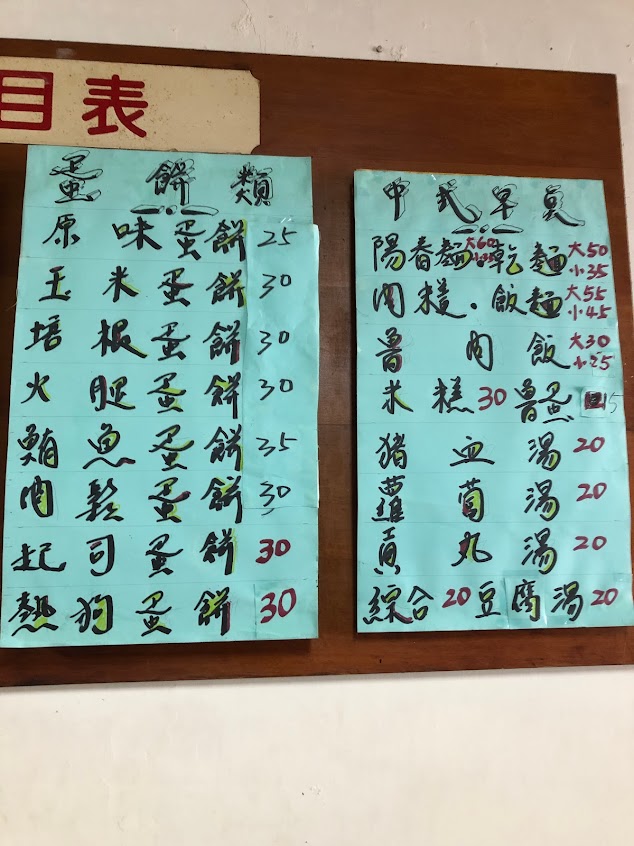 目表
蛋餅類
原味蛋餅 25
玉米蛋餅 30
培根蛋餅 30
火腿蛋餅 30
鮪魚蛋餅 35
肉鬆蛋餅 30
起司蛋餅 30
熱狗蛋餅 30
中式早點
陽春麵 大60 乾麵 大50 小35
肉糕.飯麵 大55 小45
魯肉飯 大30 小25
米糕 30 魯蛋 15
猪血湯 20
蘿蔔湯 20
貢丸湯 20
綜合 20 豆腐湯 20